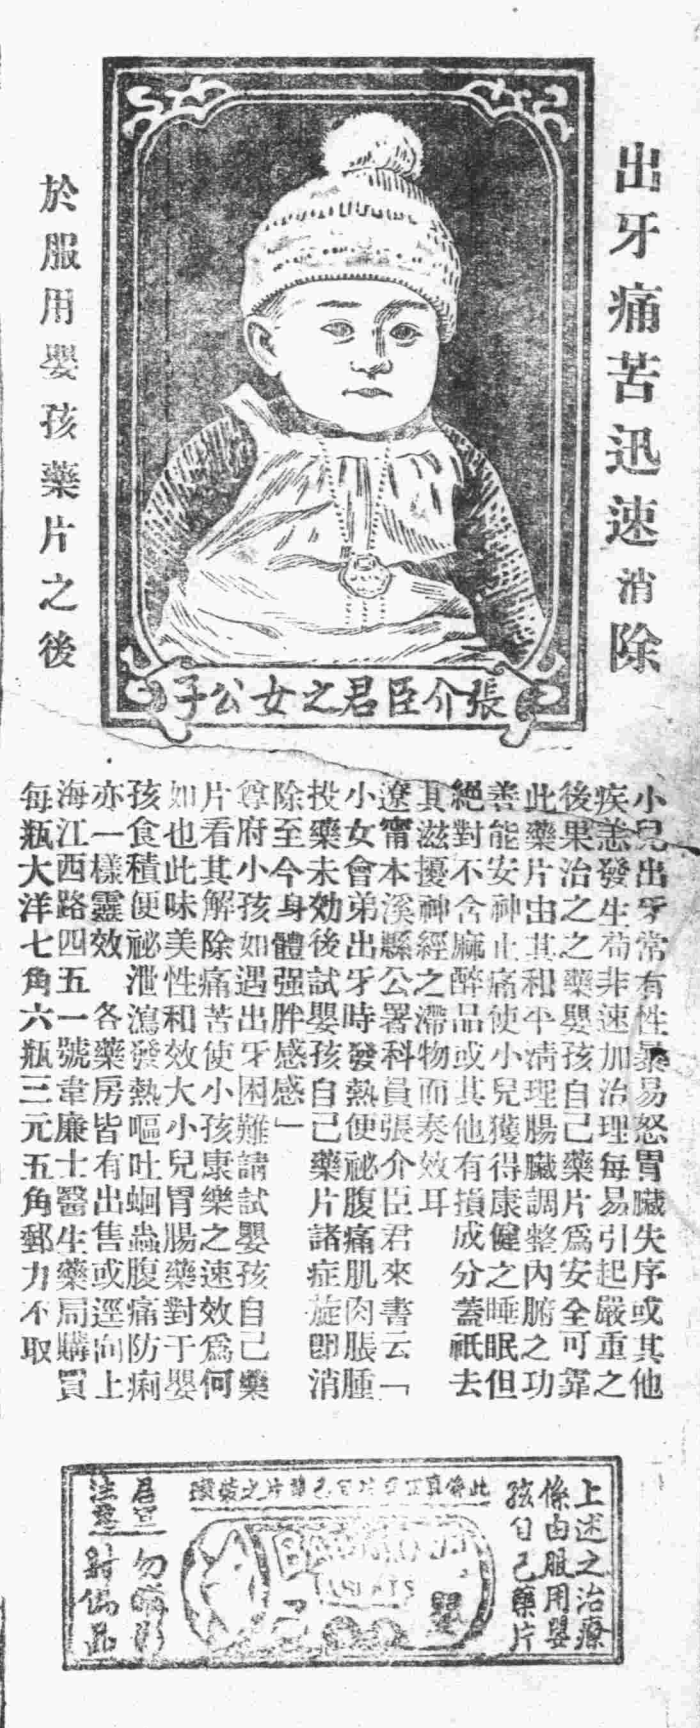 出牙痛苦迅速消除
於服用嬰孩藥片之後
張介臣君之女公子
小兒出牙常有性暴易怒胃臟失序或其他
疾恙發生苟非速加治理每易引起嚴重之
後果治之之藥嬰孩自己藥片爲安全可靠
此藥片由其和平清理腸臟調整內腑之功
善能安神止痛使小兒獲得康健之睡眠但
絕對不含麻醉品或其他有損成分蓋祇去
其滋擾神經之滯物而奏效耳
遼甯本溪縣公署科員張介臣君來書云「
小女會弟出牙時發熱便祕腹痛肌肉脹腫
投藥未効後試嬰孩自己藥片諸症旋卽消
除至今身體强胖感感」
尊府小孩如遇出牙困難請試嬰孩自己藥
片看其解除痛苦使小孩康樂之速效爲何
如也此味美性和效大小兒胃腸藥對于嬰
孩食積便祕泄瀉發熱嘔吐蛔蟲腹痛防痢
亦一樣靈效 各藥房皆有出售或逕向上
海江西路四五一號韋廉士醫生藥局購買
每瓶大洋七角六瓶三元五角郵力不取
上述之治療
係由服用嬰
孩自己藥片
此係真正嬰孩自己藥片之裝璜
TABLETS
嬰
君宜 勿購影
注意 射偽品